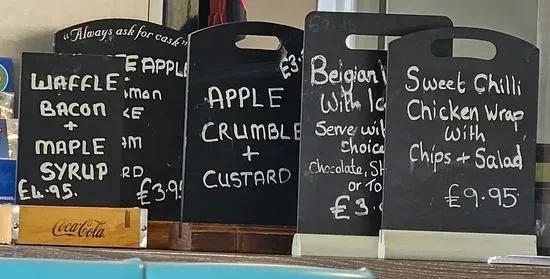 WAFFLE
BACON
+
MAPLE
SYRUP
£4.95.
Coca-Cola
"Always ask for cask"
APPLE
£3.9
APPLE
CRUMBLE
+
CUSTARD
£3
Belgian
With
Serve wit
choice
Chocolate, St
or To
£3.
Sweet Chilli
Chicken Wrap
with
Chips + Salad
£9.95